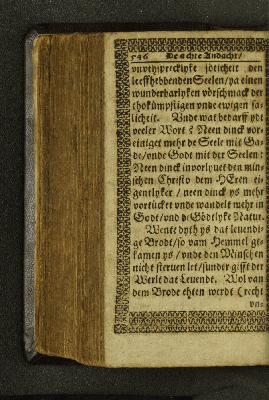 546 De achte Andacht/
vnuthsprecklyke söteicheit den
leeffhebbenden Seelen/ ya einen
wunderbarlyken vörschmack der
thokümpstigen vnde ewigen sa-
licheit. Vnde wat bedarff ydt
veeler Wort? Neen dinck vor-
einiget mehr de Seele mit Ga-
de/ vnde Godt mit der Seelen:
Neen dinck invorlyuet den min-
schen Christo dem HEren ei-
gentlyker/ neen dinck ys mehr
vortücket vnde wandelt mehr in
Godt/ vnd de Gödtlyke Natur.
Wente dyth ys dat leuendi-
ge Brodt/ so vam Hemmel ge-
kamen ys/ vnde den Minschen
nicht steruen let/ sunder gifft der
Werlt dat Leuende. Wol van
dem Brode ehten werdt (recht
vn-